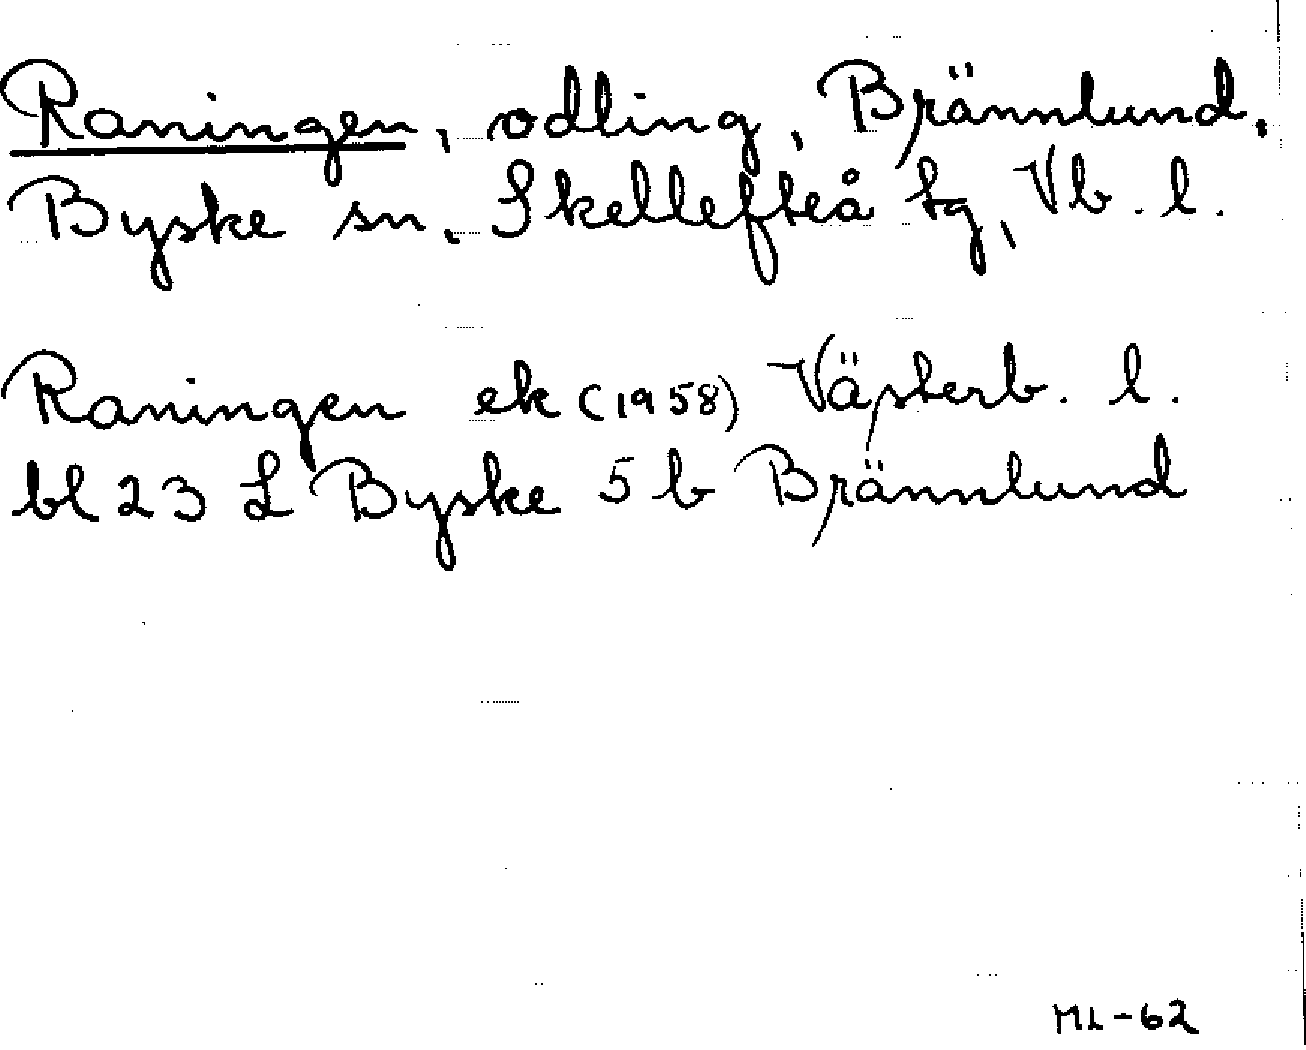 Raningen, odling, Brännlund,
Byske sn. Skellefteå tg, Vb. l.
Raningen ek (1958) Västerb. l.
bl 23 L Byske 5 b Brännlund
ML-62